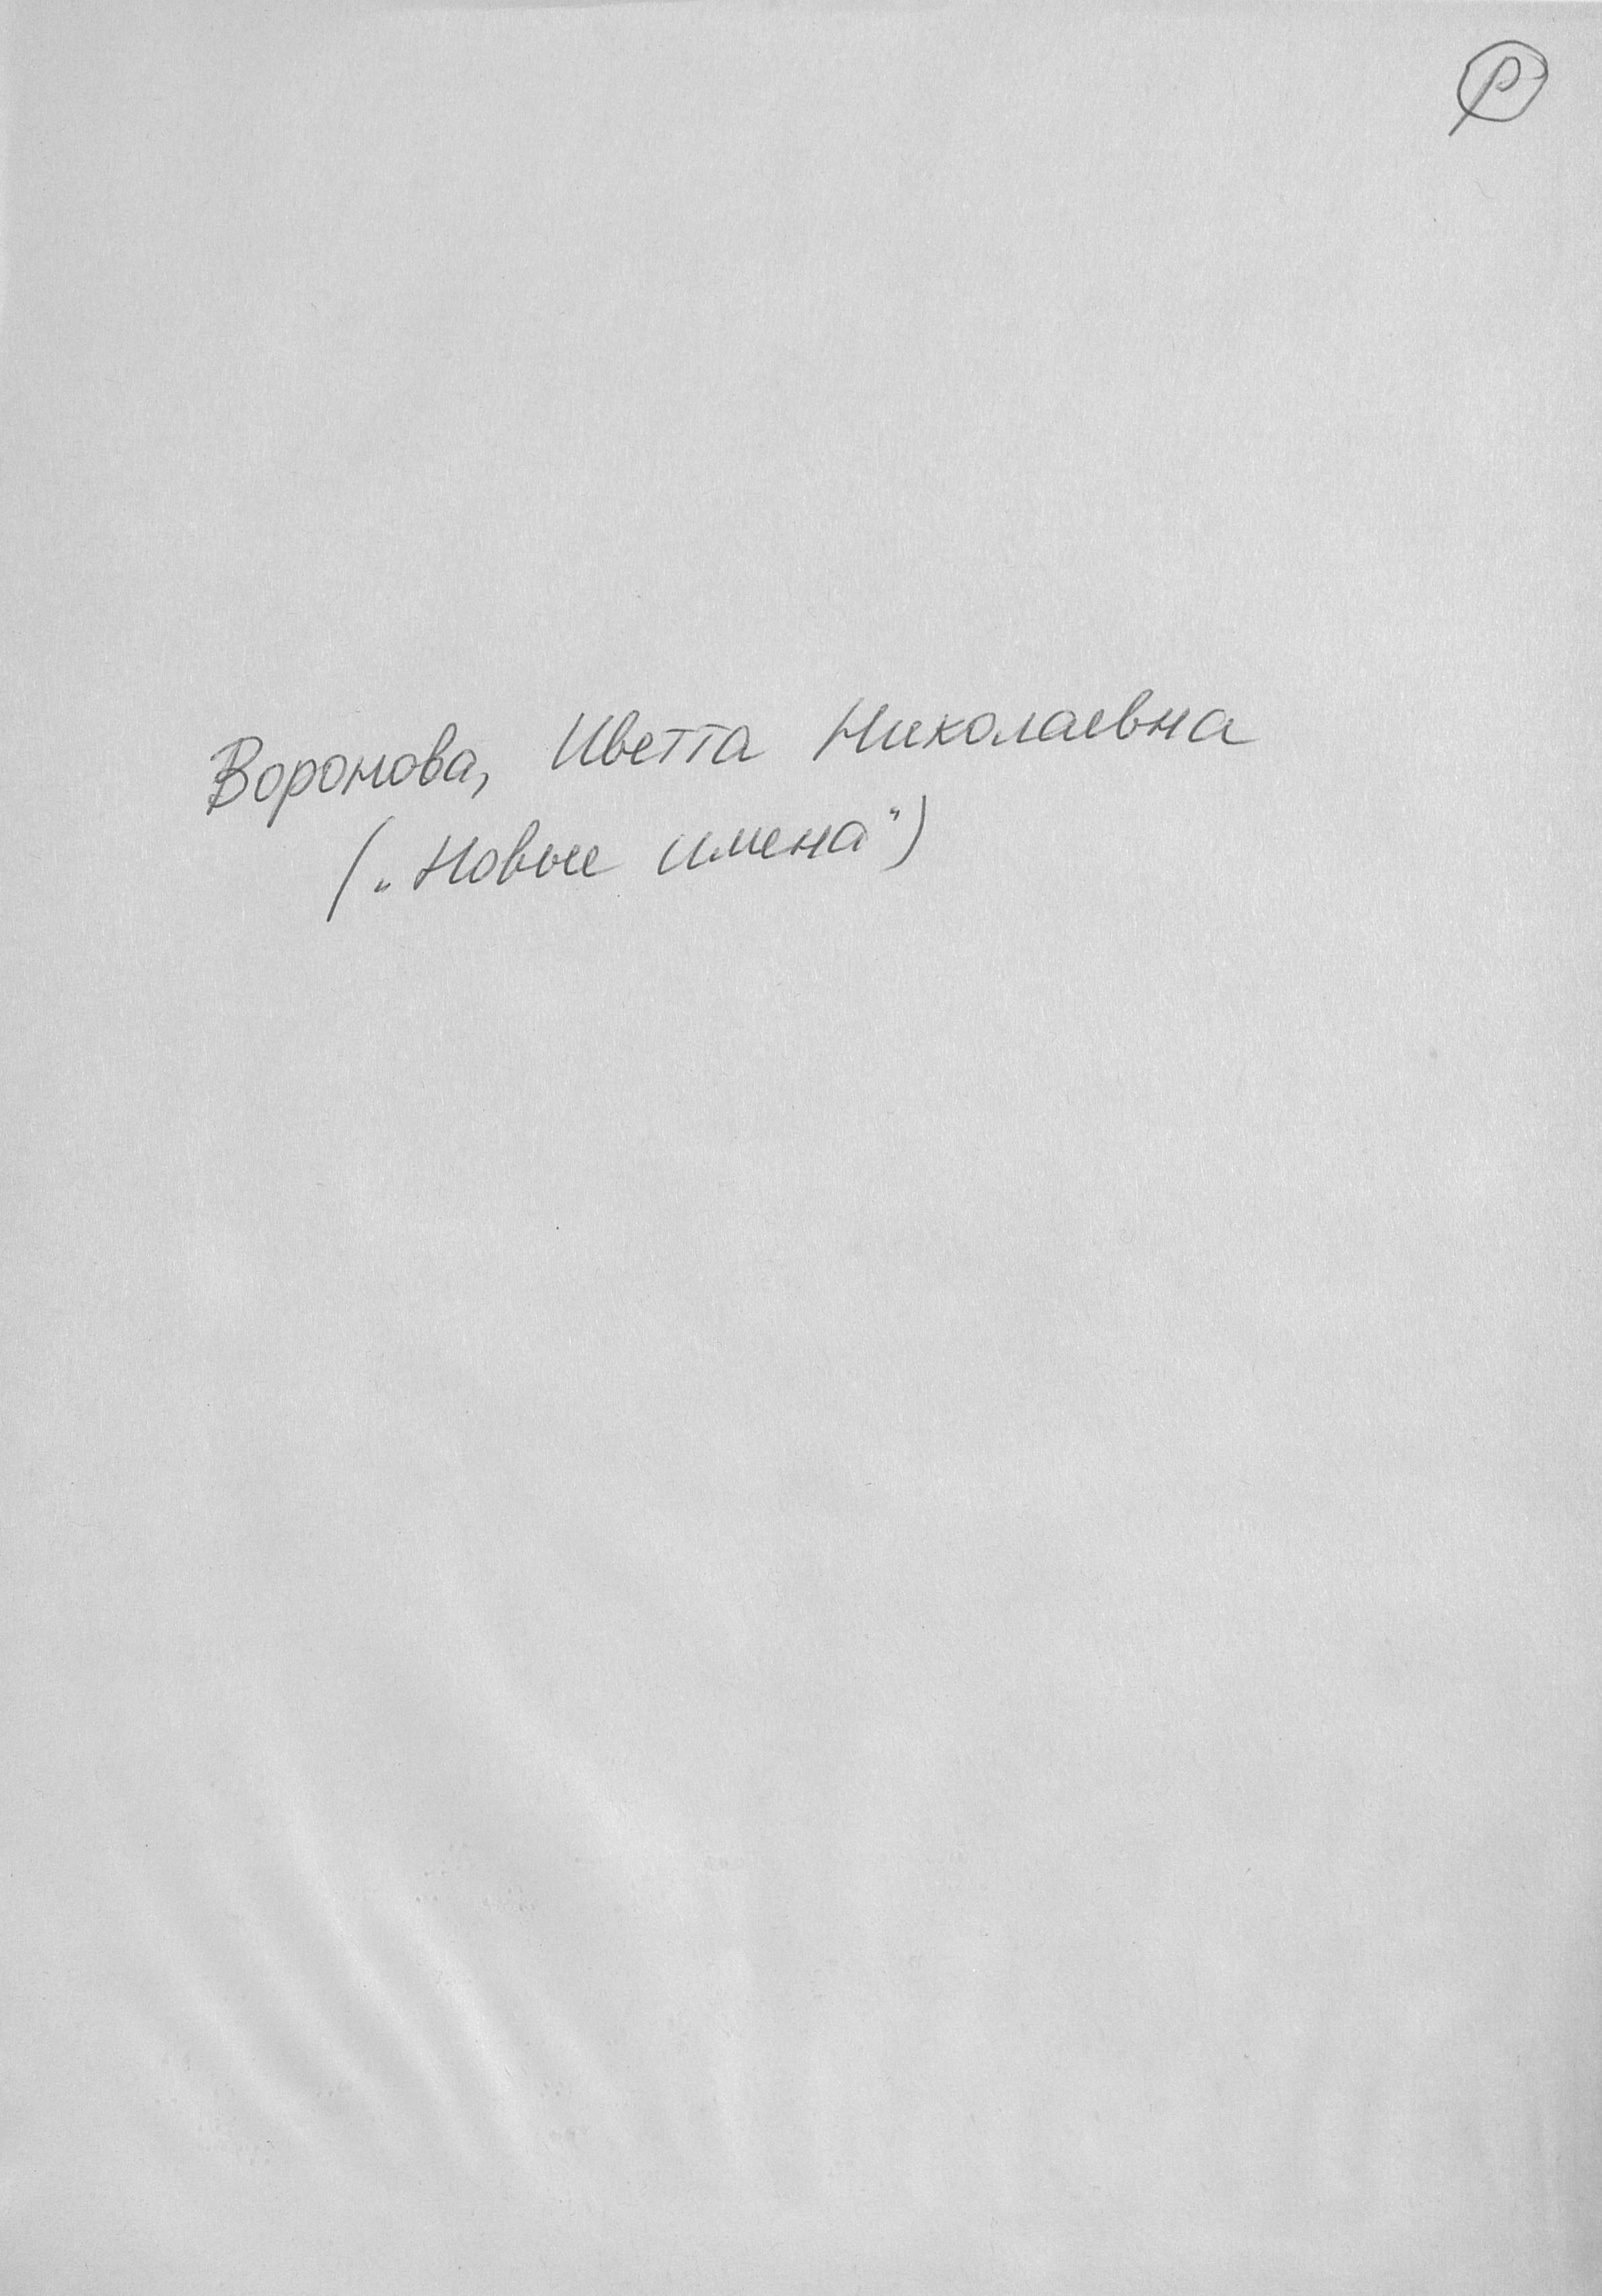 Р
Воронова, Иветта Николаевна
(„Новые имена")